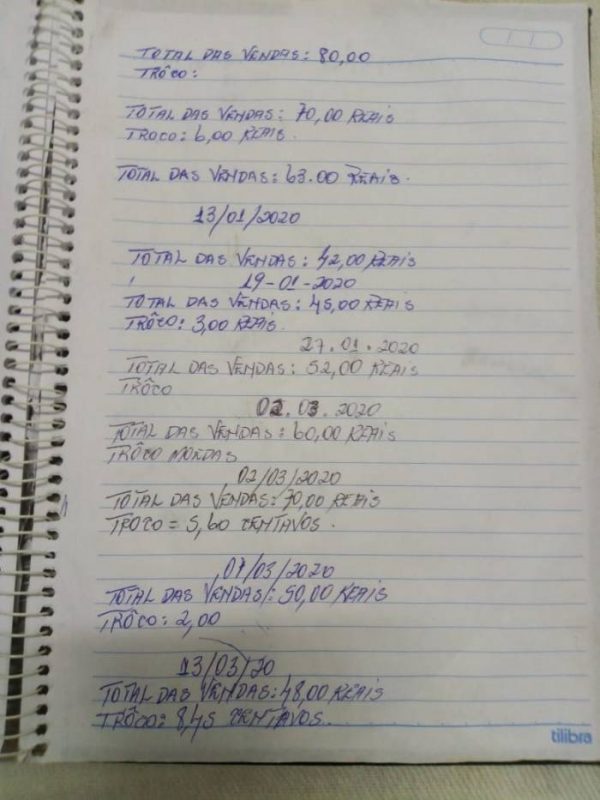 TOTAL DAS VENDAS: 80,00
TRÔCO:
TOTAL DAS VENDAS: 70,00 REAIS
TROCO: 6,00 REAIS.
TOTAL DAS VENDAS: 63.00 REAIS.
13/01/2020
TOTAL DAS VENDAS: 42,00 REAIS
19-01-2020
TOTAL DAS VENDAS: 45,00 REAIS
TRÔCO: 3,00 REAIS.
27.01.2020
TOTAL DAS VENDAS: 52,00 REAIS
TRÔCO
02.03.2020
TOTAL DAS VENDAS: 60,00 REAIS
TRÔCO MOEDAS
02/03/2020
TOTAL DAS VENDAS: 70,00 REAIS
TROCO = 5,60 CENTAVOS.
07/03/2020
TOTAL DAS VENDAS: 50,00 REAIS
TRÔCO: 2,00
13/03/20
TOTAL DAS VENDAS: 48,00 REAIS
TRÔCO: 8,45 CENTAVOS.
tilibra